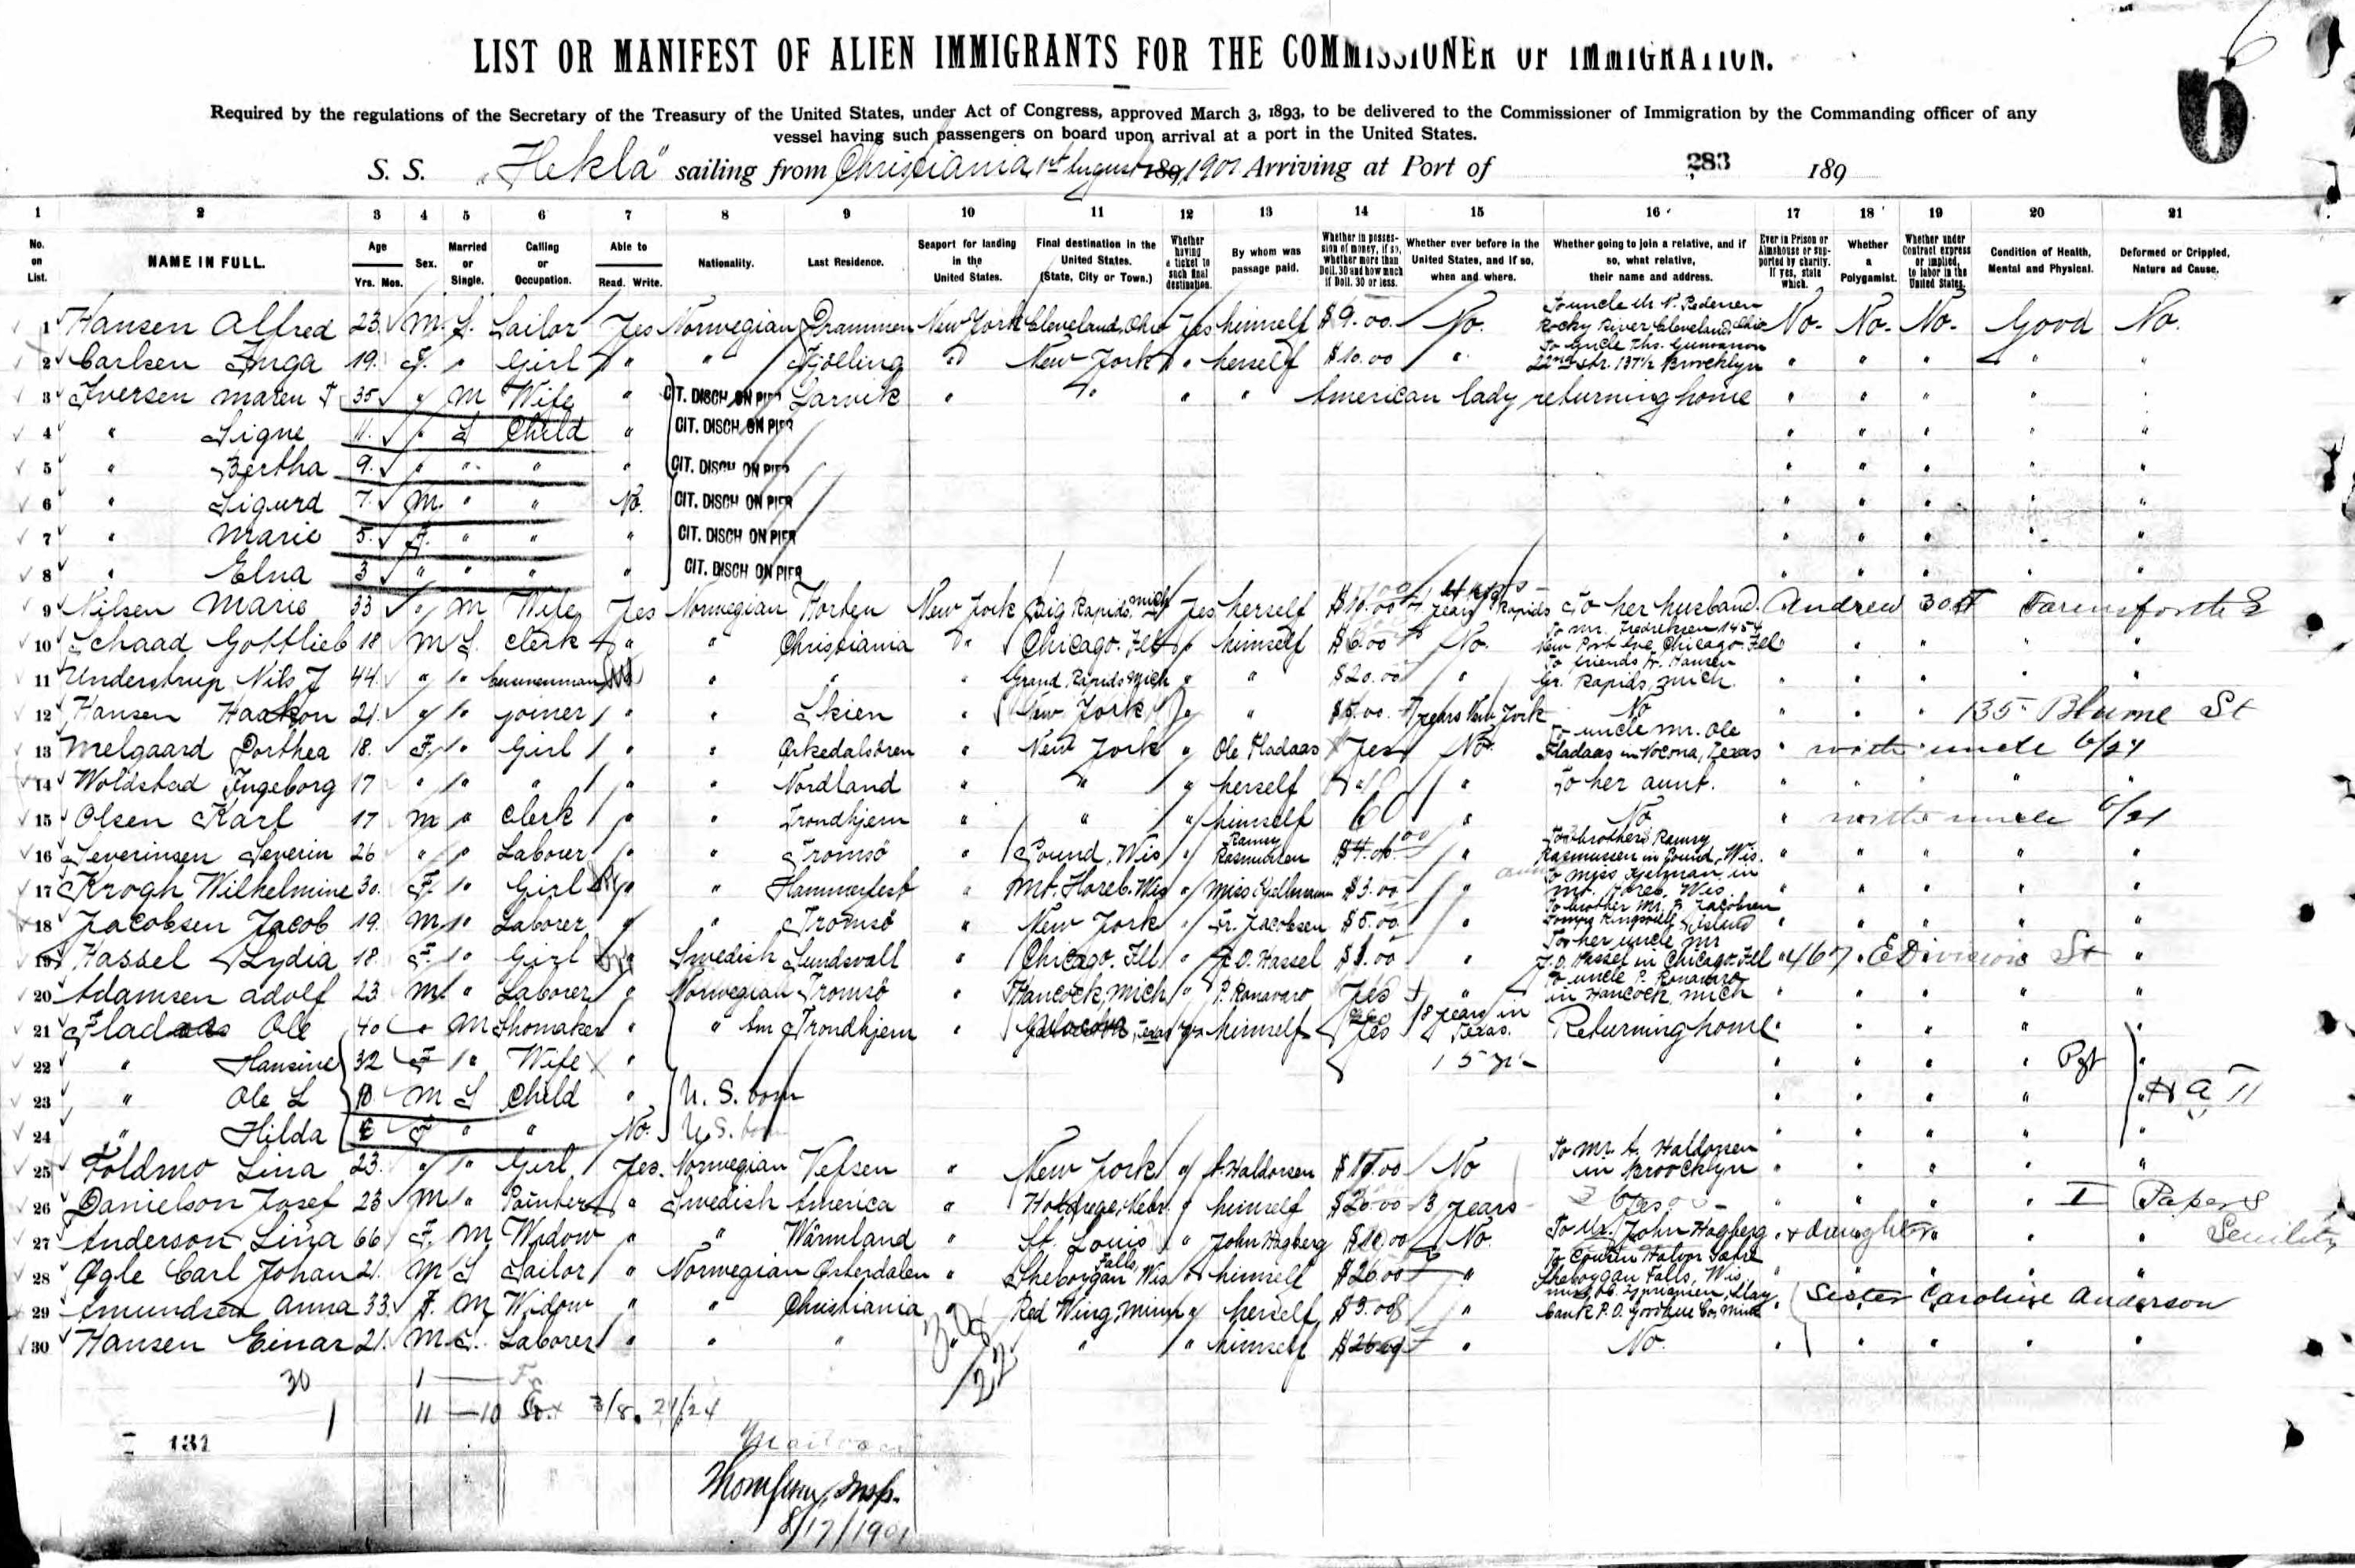 6
LIST OR MANIFEST OF ALIEN IMMIGRANTS FOR THE COMMISSIONER OF IMMIGRATION.
6
Required by the regulations of the Secretary of the Treasury of the United States, under Act of Congress, approved March 3, 1893, to be delivered to the Commissioner of Immigration by the Commanding officer of any
vessel having such passengers on board upon arrival at a port in the United States.
S. S. "Hekla" sailing from Christiania, 1st August 189, 1901 Arriving at Port of 283 189
1 2 3 4 5 6 7 8 9 10 11 12 13 14 15 16 17 18 19 20 21
No. on List. NAME IN FULL. Age Yrs. Mos. Sex. Married or Single. Calling or Occupation. Able to Read. Write. Nationality. Last Residence. Seaport for landing in the United States. Final destination in the United States. (State, City or Town.) Whether having a ticket to such final destination. By whom was passage paid. Whether in possession of money, if so, whether more than Doll. 30 and how much if Doll. 30 or less. Whether ever before in the United States, and if so, when and where. Whether going to join a relative, and if so, what relative, their name and address. Ever in Prison or Almshouse or supported by charity. If yes, state which. Whether a Polygamist. Whether under Contract express or implied, to labor in the United States. Condition of Health, Mental and Physical. Deformed or Crippled, Nature ad Cause.
1 Hansen Alfred 23 M. S. Sailor Yes Norwegian Drammen New York Cleveland, Ohio Yes himself $9.00. No. To uncle Mr N. Pedersen Rocky River Cleveland Ohio No. No. No. Good No.
2 Carlsen Inga 19. F. " Girl " " Fjölling " New York " herself $10.00 " To uncle Ths. Gunnarson 22nd str. 137½ Brooklyn " " " " "
3 Iversen Maren 35 " M Wife " CIT. DISCH ON PIER Larvik " " " " American lady returning home " " " " "
4 " Signe 11. " S Child " CIT. DISCH ON PIER " " " " "
5 " Bertha 9. " " " " CIT. DISCH ON PIER " " " " "
6 " Sigurd 7. M. " " No. CIT. DISCH ON PIER " " " " "
7 " Marie 5. F. " " " CIT. DISCH ON PIER " " " " "
8 " Elna 3 " " " " CIT. DISCH ON PIER " " " " "
9 Nilsen Marie 33 " M Wife Yes Norwegian Horten New York Big Rapids, Mich Yes herself $10.00 years Rapids To her husband. Andrew
10 Schaad Gottlieb 18 M S. Clerk " " Christiania " Chicago. Ill " himself $6.00 No. To Mr. Fredriksen 1454 New Port Ave Chicago. Ill " " " "
11 Understrup Nils J 44. " " " " " Grand Rapids Mich " " $20.00 " To friends Hansen Gr. Rapids, Mich. " " " " "
12 Hansen Haakon 21. " " Joiner " " Skien " New York " " $5.00. 7 years New York No " " " 135 Blume St
13 Melgaard Dorthea 18. F. " Girl " " Orkedalsören " New York " Ole Fladaas Yes No. To uncle Mr. Ole Fladaas in Nocona, Texas " with uncle 6/24
14 Woldstad Ingeborg 17 " " " " " Nordland " " " herself " To her aunt. " " " " "
15 Olsen Karl 17 M " Clerk " " Trondhjem " " " himself 60 " No " with uncle
16 Severinsen Severin 26 " " Laborer " " Tromsö " Pound, Wis " Ramey Rasmussen $4.00 " To brother Ramey Rasmussen in Pound, Wis. " " " " "
17 Krogh Wilhelmine 30. F. " Girl " " Hammerfest " Mt. Horeb. Wis " Miss Kjellman $3.00 " aunt To Miss Kjelman in Mt. Horeb, Wis. " " " " "
18 Jacobsen Jacob 19. M " Laborer " " Tromsö " New York " Jacobsen $5.00. " To brother Mr. Jacobsen Island " " " " "
19 Hassel Lydia 18. F. " Girl " Swedish Sundsvall " Chicago. Ill " J. O. Hassel $1.00 " To her uncle Mr J. O. Hassel in Chicago. Ill " 467 E Division St "
20 Adamsen Adolf 23 M. " Laborer " Norwegian Tromsö " Hancock, Mich " P. Ranavaro Yes " To uncle P. Ranavaro in Hancock, Mich " " " " "
21 Fladaas Ole 40 " M Shomaker " " Am Trondhjem " Texas " himself Yes 8 years in Texas. Returning home " " " " "
22 " Hansine 32 F " Wife " 15 yrs " " " " "
23 " Ole L 10 M S Child " U. S. born " " " " "
24 " Hilda F " " No. U. S. born " " " " "
25 Foldmo Lina 23. " " Girl Yes. Norwegian Vefsen " New York " A. Haldorsen $11.00 No To Mr. A. Haldorsen in Brooklyn " " " " "
26 Danielson Josef 23 M " Painter " Swedish America " Holdrege, Nebr. " himself $20.00 3 years " " " " I Papers
27 Anderson Lina 66 F. M Widow " " Wärmland " St. Louis " John Hagberg $10.00 No. To Mr. John Hagberg " daughter " " " Senility
28 Øgle Carl Johan 21. M S Sailor " Norwegian Østerdalen " Sheboygan Falls, Wis " himself $26.00 " To Cousin Halvor Sohre Sheboygan Falls, Wis. " " " " "
29 Amundsen Anna 33. F. M Widow " " Christiania " Red Wing Minn " herself $5.00 " P.O. Goodhue Co, Minn " Sister Caroline Anderson
30 Hansen Einar 21. M. S. Laborer " " " " " " himself " No. " " " " "
30
11 — 10 3/8. 21/24
131
Insp.
8/17/1901